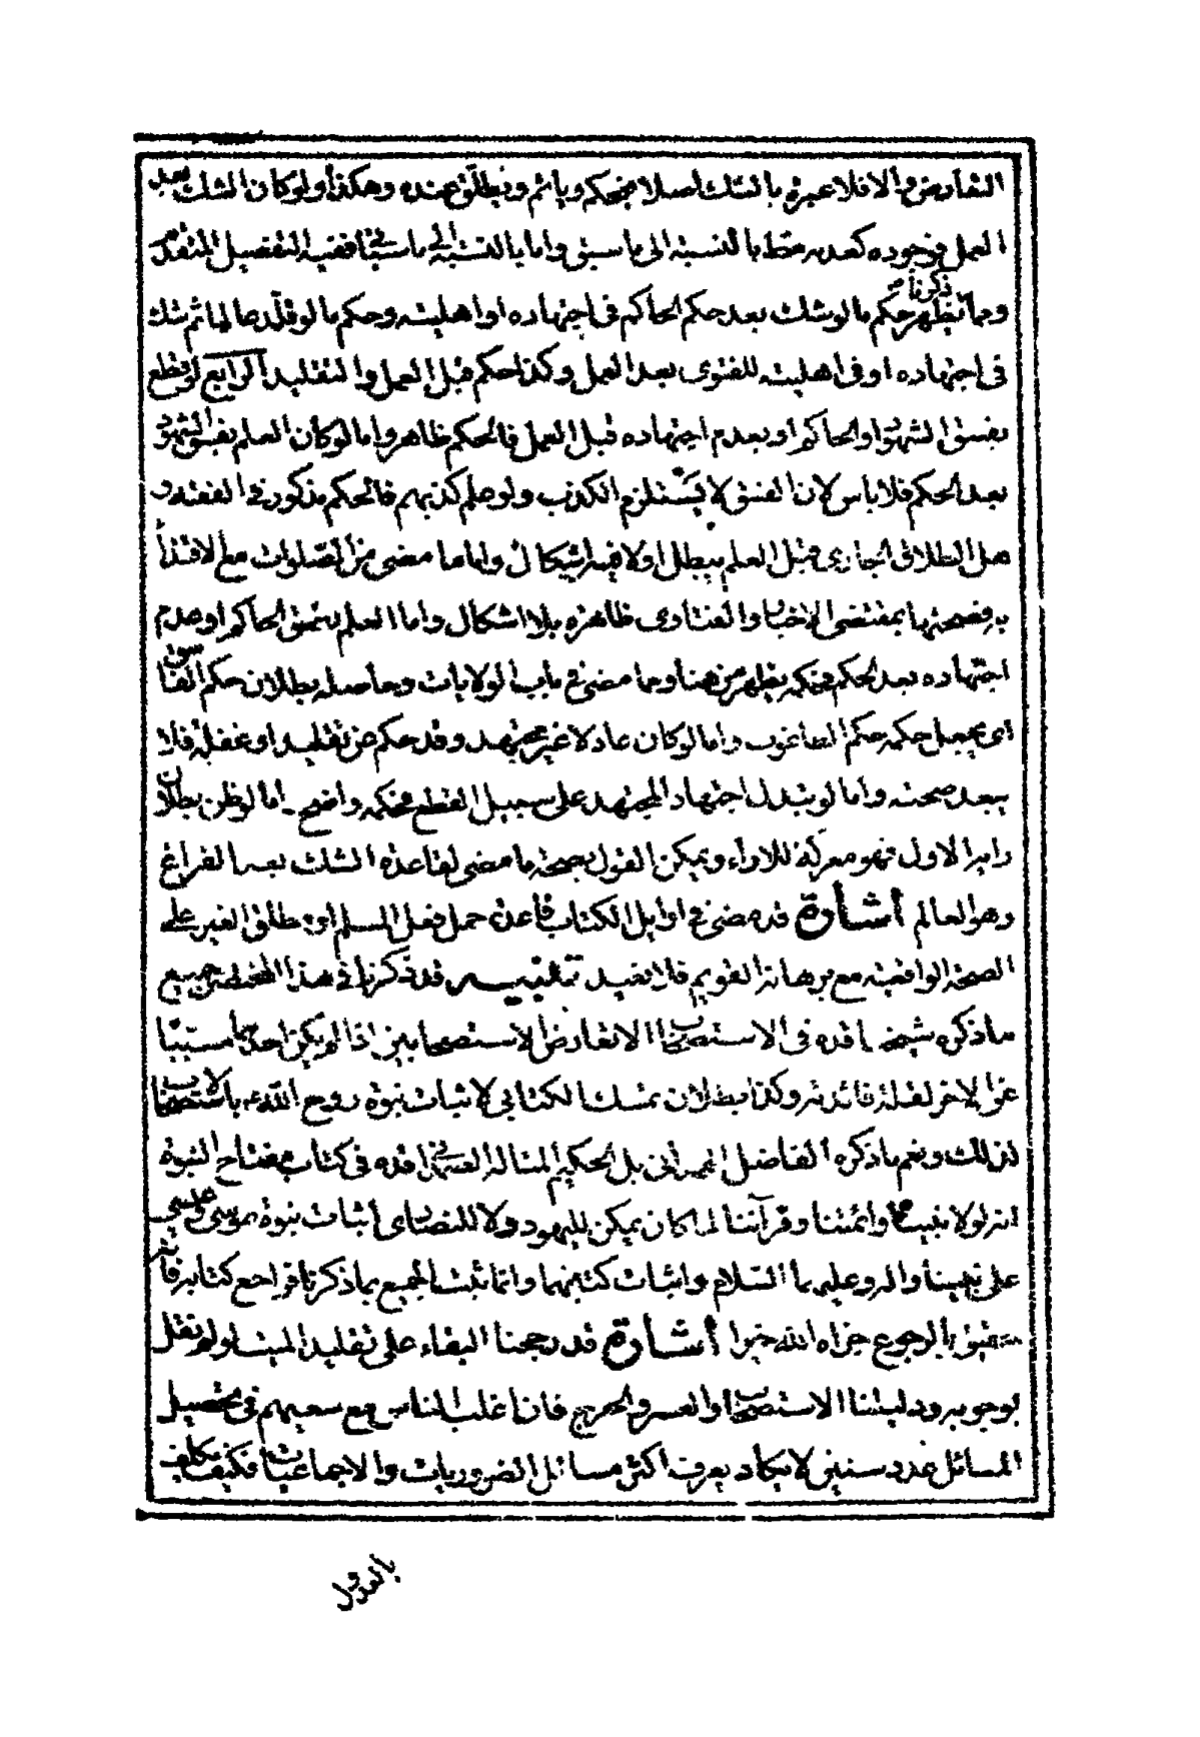 التعارض والا فلا عبرة بالشك اصلا فيحكم وياثم ويطلق عنده وهكذا ولو كان الشك بعد
العمل فوجوده كعدمه فقط بالنسبة الى ما سبق واما بالنسبة الى ما سياتى ففيه التفصيل المتقدم
ومما ذكرنا يظهر حكم ما لو شك بعد حكم الحاكم فى اجتهاده او اهليته وحكم ما لو قلد عالما ثم شك
فى اجتهاده او فى اهليته للفتوى بعد العمل وكذا حكم قبل العمل والتقليد الرابع لو قطع
بفسق الشهود او الحاكم او بعدم اجتهاده قبل العمل فالحكم ظاهر واما لو كان العلم بفسق الشهود
بعد الحكم فلا باس لان الفسق لا يستلزم الكذب ولو علم كذبهم فالحكم مذكور فى الفقه و
هل الطلاق الجارى قبل العلم يبطل اولا فيه اشكال واما ما مضى من الصلوات مع الاقتداء
به فصحتها بمقتضى الاخبار والفتاوى ظاهرة بلا اشكال واما العلم بفسق الحاكم او عدم
اجتهاده بعد الحكم فحكمه يظهر من هنا ومما مضى فى باب الولايات وحاصله بطلان حكم الفاسق
اى يجعل حكمه حكم الطاغوت واما لو كان عادلا غير مجتهد وقد حكم عن تقليد او غفلة فلا
يبعد صحته واما لو تبدل اجتهاد المجتهد على سبيل القطع فحكمه واضح اما لو ظن بطلان
رايه الاول فهو معركة للاراء ويمكن القول بصحة ما مضى لقاعدة الشك بعد الفراغ
وهو العالم اشارة قد مضى فى اوايل الكتاب قاعدة حمل فعل المسلم او مطلق الغير على
الصحة الواقعية مع برهانه القويم فلا نعيد تنبيه قد ذكرنا فى هذا المختصر جميع
ما ذكره شيخنا قده فى الاستصحاب الا تعارض الاستصحابين اذا لم يكن احدهما مسببا
عن الاخر لقلة فائدته وكذا بطلان تمسك الكتابى لاثبات نبوة روح الله بالاستصحاب
لذلك ونعم ما ذكره الفاضل بل الحكيم المتاله قده فى كتاب مفتاح النبوة
انه لولا نبينا وائمتنا وقرآننا لما كان يمكن لليهود ولا للنصارى اثبات نبوة موسى وعيسى
على نبينا واله وعليهما السلام واثبات كتبهما وانما ثبت الجميع بما ذكرنا فراجع كتابه فانه
حقيق بالرجوع جزاه الله خيرا اشارة قد رجحنا البقاء على تقليد الميت لو لم نقل
بوجوبه ودليلنا الاستصحاب والعسر والحرج فان اغلب الناس مع سعيهم فى تحصيل
المسائل عدد سنين لا يكاد يعرف اكثر مسائل الضروريات والاجماعيات فكيف تكلف
بالعدول